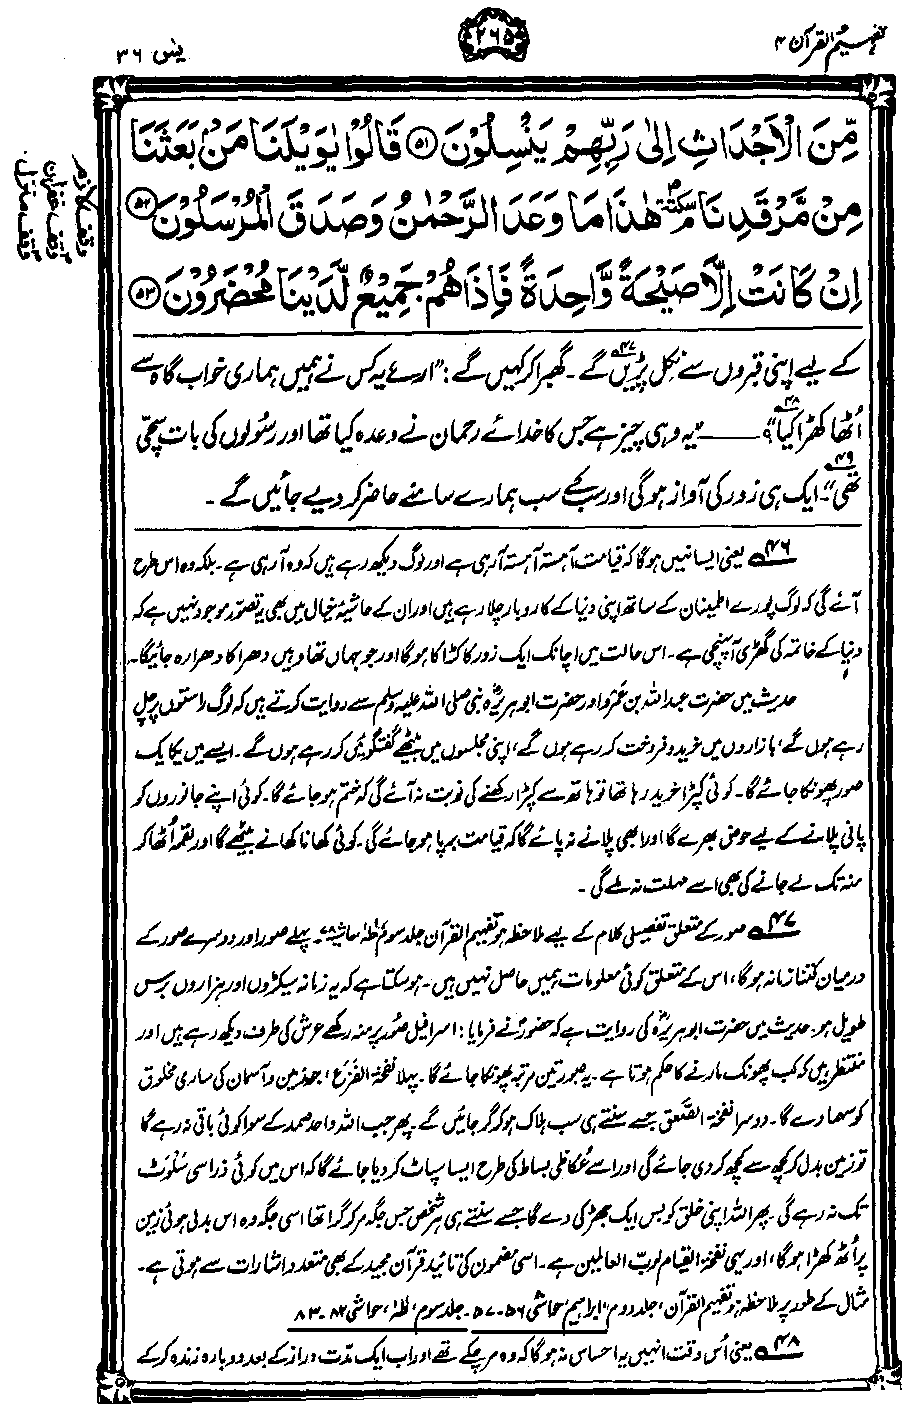 تفہیم القرآن ۴
۲۶۵
یٰس ۳۶
مِّنَ الْاَجْدَاثِ اِلٰى رَبِّهِمْ يَنْسِلُوْنَ ۵۱ قَالُوْا يٰوَيْلَنَا مَنْۢ بَعَثَنَا
مِنْ مَّرْقَدِنَا ۘ سكتة هٰذَا مَا وَعَدَ الرَّحْمٰنُ وَصَدَقَ الْمُرْسَلُوْنَ ۵۲
اِنْ كَانَتْ اِلَّا صَيْحَةً وَّاحِدَةً فَاِذَا هُمْ جَمِيْعٌ لَّدَيْنَا مُحْضَرُوْنَ ۵۳
وقف لازم
وقف غفران
وقف منزل
کے لیے اپنی قبروں سے نکل پڑیں گے۔ ۴۷ گھبرا کر کہیں گے: ”ارے یہ کس نے ہمیں ہماری خواب گاہ سے
اُٹھا کھڑا کیا“؟ ۴۸ ——— ”یہ وہی چیز ہے جس کا خدائے رحمان نے وعدہ کیا تھا اور رسُولوں کی بات سچّی
تھی“۔ ۴۹ ایک ہی زور کی آواز ہو گی اور سب کے سب ہمارے سامنے حاضر کر دیے جائیں گے۔
۴۶ یعنی ایسا نہیں ہوگا کہ قیامت آہستہ آہستہ آ رہی ہے اور لوگ دیکھ رہے ہیں کہ وہ آ رہی ہے۔ بلکہ وہ اس طرح
آئے گی کہ لوگ پورے اطمینان کے ساتھ اپنی دنیا کے کاروبار چلا رہے ہیں اور ان کے حاشیۂ خیال میں بھی یہ تصوّر موجود نہیں ہے کہ
دنیا کے خاتمہ کی گھڑی آ پہنچی ہے۔ اس حالت میں اچانک ایک زور کا کڑاکا ہوگا اور جو جہاں تھا وہیں دھرا کا دھرا رہ جائیگا۔
حدیث میں حضرت عبداللہ بن عَمْرو اور حضرت ابوہریرہؓ نبی صلی اللہ علیہ وسلم سے روایت کرتے ہیں کہ لوگ راستوں پر چل
رہے ہوں گے، بازاروں میں خرید و فروخت کر رہے ہوں گے، اپنی مجلسوں میں بیٹھے گفتگوئیں کر رہے ہوں گے۔ ایسے میں یکایک
صور پھونکا جائے گا۔ کوئی کپڑا خرید رہا تھا تو ہاتھ سے کپڑا رکھنے کی نوبت نہ آئے گی کہ ختم ہو جائے گا۔ کوئی اپنے جانوروں کو
پانی پلانے کے لیے حوض بھرے گا اور ابھی پلانے نہ پائے گا کہ قیامت برپا ہو جائے گی۔ کوئی کھانا کھانے بیٹھے گا اور لقمہ اُٹھا کر
منہ تک لے جانے کی بھی اسے مہلت نہ ملے گی۔
۴۷ صور کے متعلق تفصیلی کلام کے لیے ملاحظہ ہو تفہیم القرآن جلد سوم طٰہٰ حاشیہ ۷۸۔ پہلے صور اور دوسرے صور کے
درمیان کتنا زمانہ ہوگا، اس کے متعلق کوئی معلومات ہمیں حاصل نہیں ہیں۔ ہو سکتا ہے کہ یہ زمانہ سیکڑوں اور ہزاروں برس
طویل ہو۔ حدیث میں حضرت ابوہریرہؓ کی روایت ہے کہ حضورؐ نے فرمایا: اسرافیل صُور پر منہ رکھے عرش کی طرف دیکھ رہے ہیں اور
منتظر ہیں کہ کب پھونک مارنے کا حکم ہوتا ہے۔ یہ صور تین مرتبہ پھونکا جائے گا۔ پہلا نفخۃ الفَزَع، جو زمین و آسمان کی ساری مخلوق
کو سہما دے گا۔ دوسرا نفخۃ الصَّعق جسے سنتے ہی سب ہلاک ہو کر گر جائیں گے۔ پھر جب اللہ واحد صمد کے سوا کوئی باقی نہ رہے گا
تو زمین بدل کر کچھ سے کچھ کر دی جائے گی اور اسے عُکاظی بساط کی طرح ایسا سپاٹ کر دیا جائے گا کہ اس میں کوئی ذرا سی سَلوَٹ
تک نہ رہے گی۔ پھر اللہ اپنی خلق کو بس ایک جھڑکی دے گا جسے سنتے ہی ہر شخص جس جگہ مر کر گرا تھا اسی جگہ وہ اس بدلی ہوئی زمین
پر اُٹھ کھڑا ہو گا، اور یہی نفخۃ القیام لربّ العالمین ہے۔ اسی مضمون کی تائید قرآن مجید کے بھی متعدد اشارات سے ہوتی ہے۔
مثال کے طور پر ملاحظہ ہو تفہیم القرآن، جلد دوم، ابراہیم، حواشی ۵۶-۵۷۔ جلد سوم، طٰہٰ، حواشی ۸۲-۸۳
۴۸ یعنی اُس وقت انہیں یہ احساس نہ ہوگا کہ وہ مر چکے تھے اور اب ایک مدّت دراز کے بعد دوبارہ زندہ کر کے